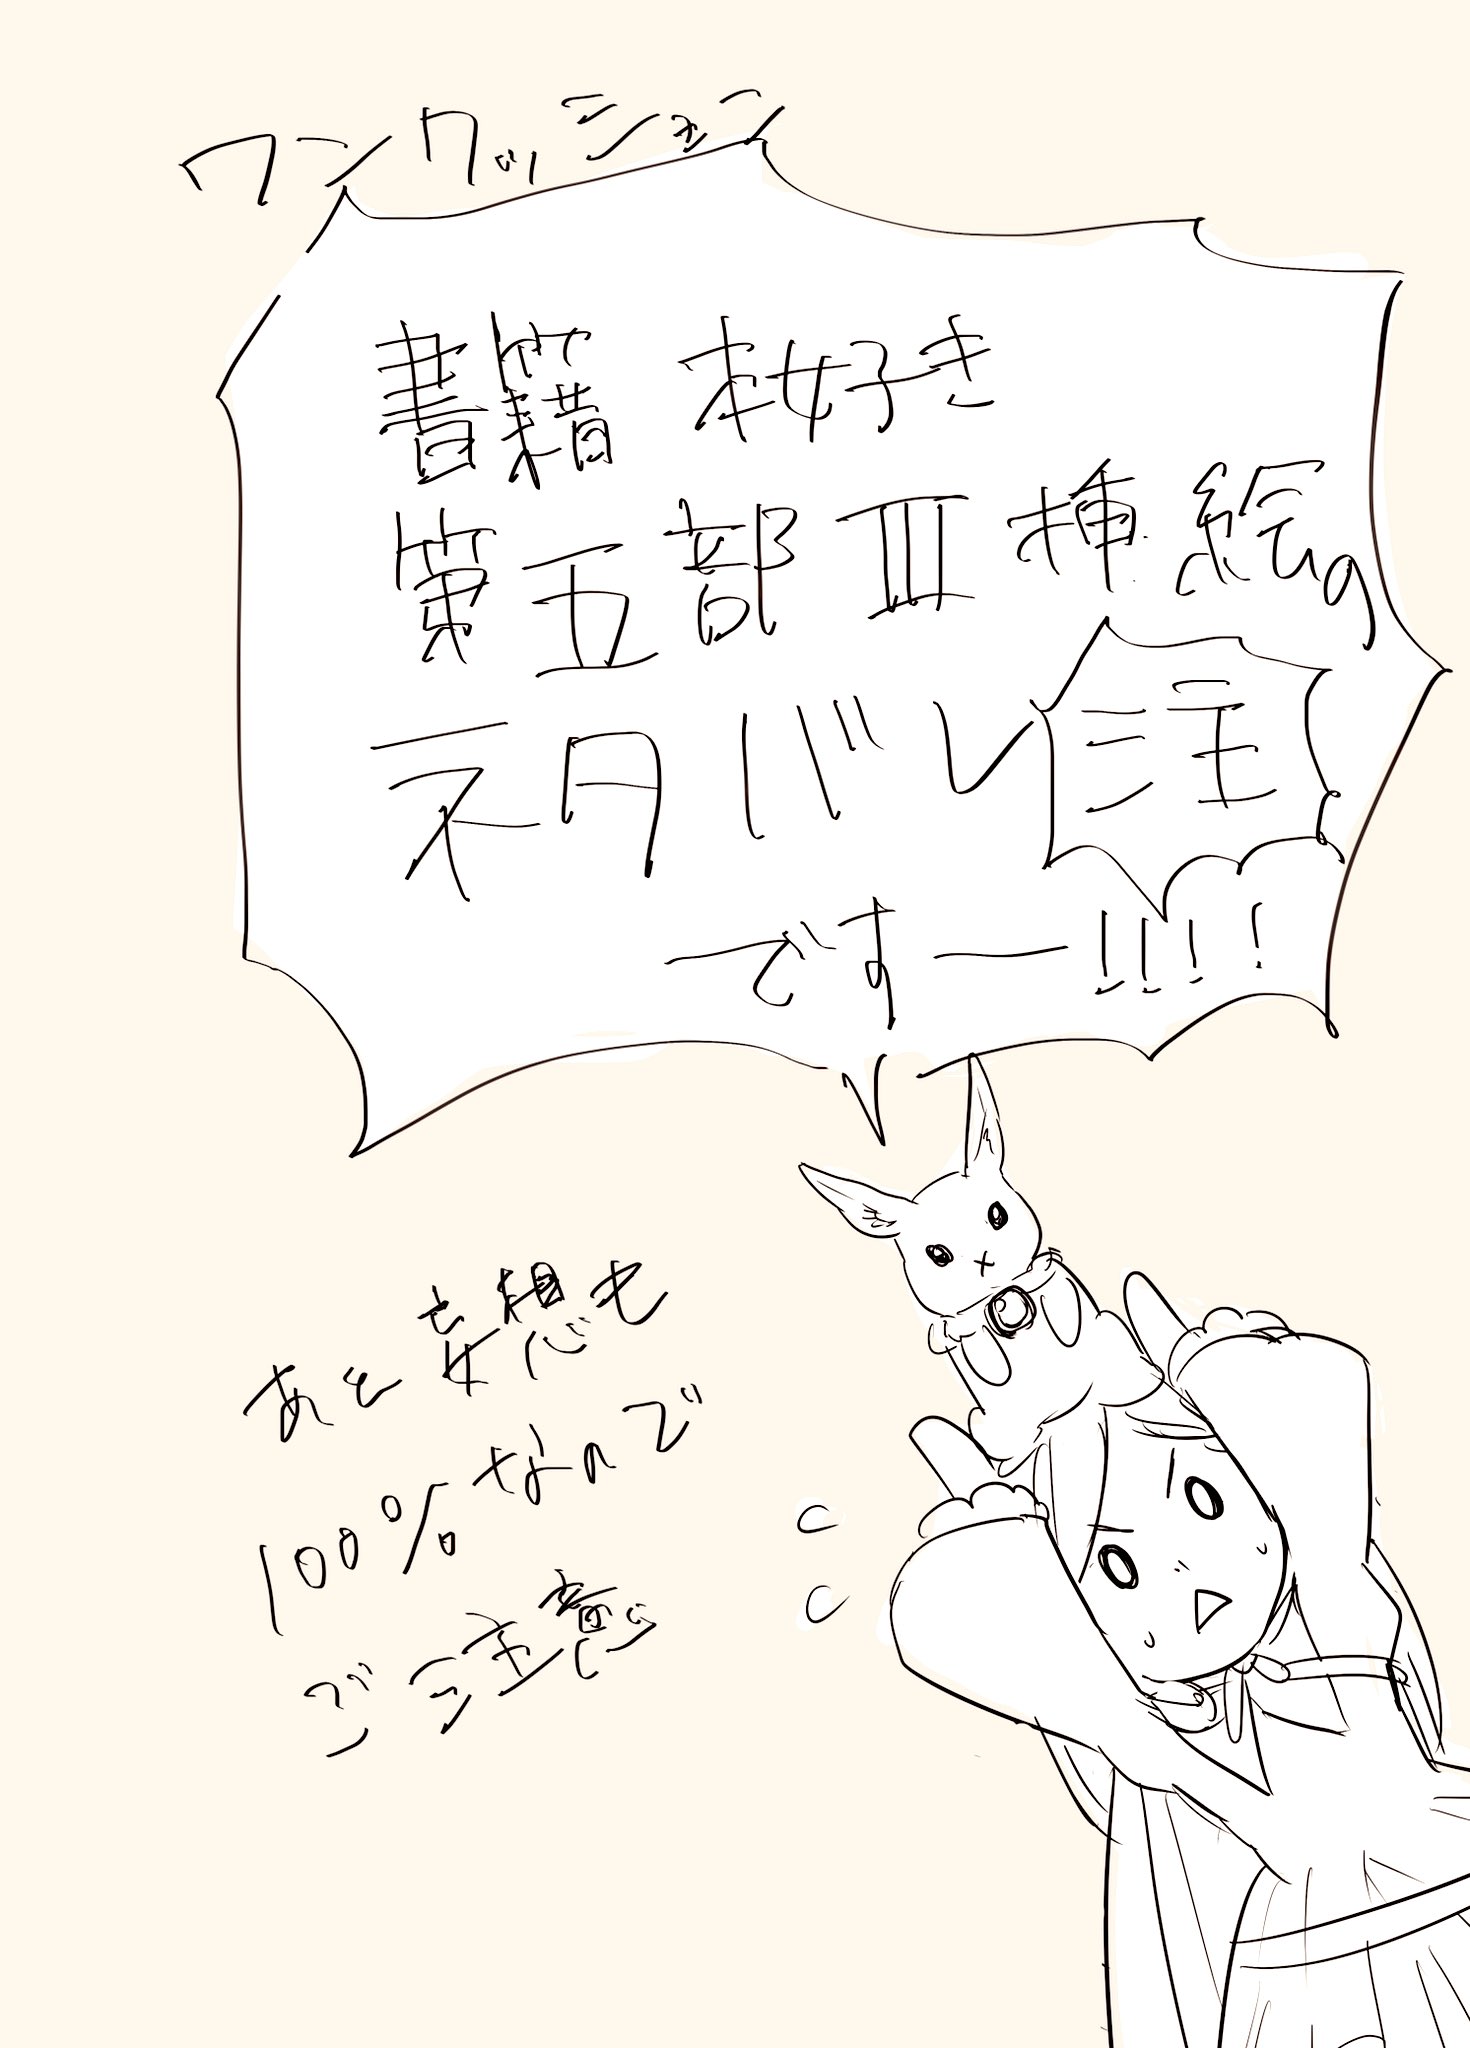 ワンクッション
書籍 本好き
第五部Ⅲ挿絵の
ネタバレ注
ですー!!!!
あと妄想も
100%なので
ご注意